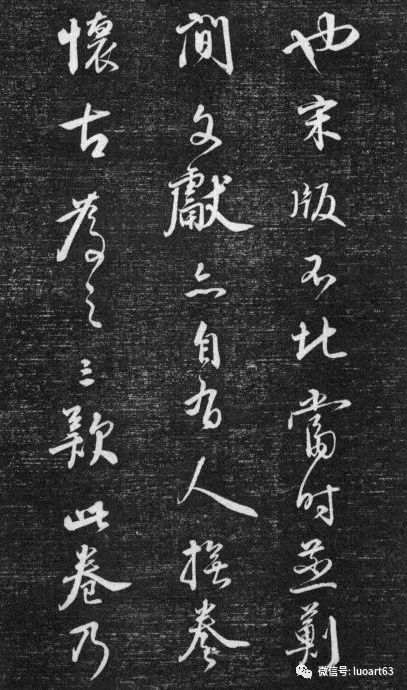 也宋版不北當时燕薊
間文獻亦自有人撫卷
懷古為之三歎此卷乃
微信号: luoart63